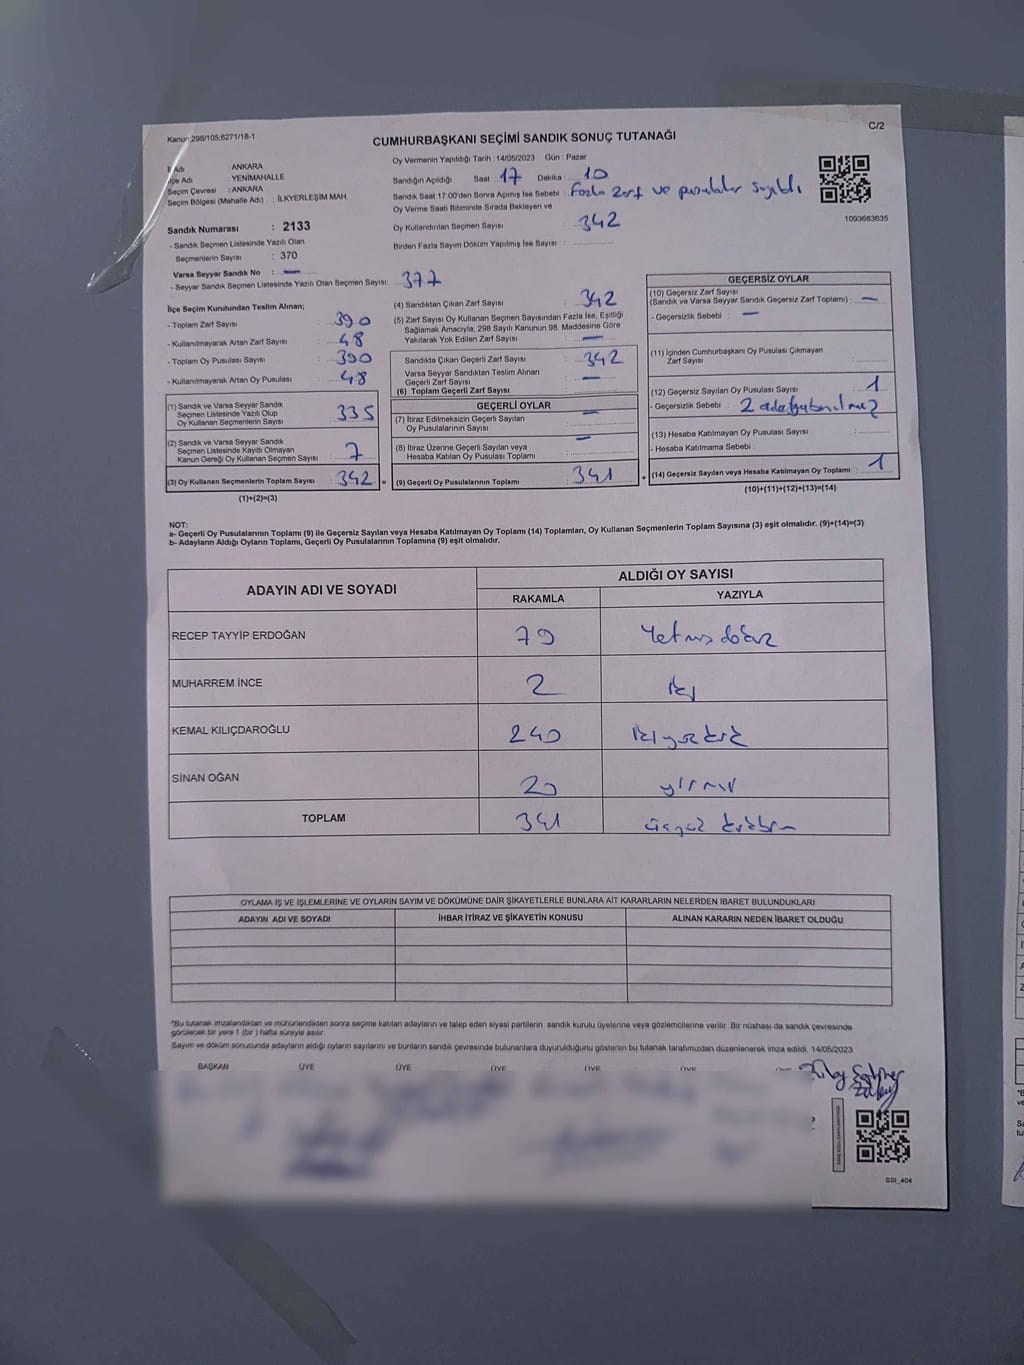 Kanun:298/105;6271/18-1
C/2
CUMHURBAŞKANI SEÇİMİ SANDIK SONUÇ TUTANAĞI
İl Adı : ANKARA
İlçe Adı : YENİMAHALLE
Seçim Çevresi : ANKARA
Seçim Bölgesi (Mahalle Adı) : İLKYERLEŞİM MAH.
Oy Vermenin Yapıldığı Tarih : 14/05/2023 Gün : Pazar
Sandığın Açıldığı Saat : 17 Dakika : 10
Sandık Saat 17.00'den Sonra Açımış İse Sebebi : Fazla zarf ve pusulalar sayıldı
Oy Verme Saati Bitiminde Sırada Bekleyen ve
Oy Kullandırılan Seçmen Sayısı : 342
Birden Fazla Sayım Döküm Yapılmış İse Sayısı :
1093683635
Sandık Numarası : 2133
- Sandık Seçmen Listesinde Yazılı Olan
Seçmenlerin Sayısı : 370
Varsa Seyyar Sandık No : —
- Seyyar Sandık Seçmen Listesinde Yazılı Olan Seçmen Sayısı: 377
İlçe Seçim Kurulundan Teslim Alınan;
- Toplam Zarf Sayısı : 390
- Kullanılmayarak Artan Zarf Sayısı : 48
- Toplam Oy Pusulası Sayısı : 390
- Kullanılmayarak Artan Oy Pusulası : 48
(1) Sandık ve Varsa Seyyar Sandık
Seçmen Listesinde Yazılı Olup
Oy Kullanan Seçmenlerin Sayısı : 335
(2) Sandık ve Varsa Seyyar Sandık
Seçmen Listesinde Kayıtlı Olmayan
Kanun Gereği Oy Kullanan Seçmen Sayısı : 7
(3) Oy Kullanan Seçmenlerin Toplam Sayısı : 342 =
(1)+(2)=(3)
(4) Sandıktan Çıkan Zarf Sayısı : 342
(5) Zarf Sayısı Oy Kullanan Seçmen Sayısından Fazla İse, Eşitliği
Sağlamak Amacıyla; 298 Sayılı Kanunun 98. Maddesine Göre
Yakılarak Yok Edilen Zarf Sayısı : —
Sandıkta Çıkan Geçerli Zarf Sayısı : 342
Varsa Seyyar Sandıktan Teslim Alınan
Geçerli Zarf Sayısı : —
(6) Toplam Geçerli Zarf Sayısı :
GEÇERLİ OYLAR
(7) İtiraz Edilmeksizin Geçerli Sayılan
Oy Pusulalarının Sayısı : —
(8) İtiraz Üzerine Geçerli Sayılan veya
Hesaba Katılan Oy Pusulası Toplamı : —
(9) Geçerli Oy Pusulalarının Toplamı : 341 +
GEÇERSİZ OYLAR
(10) Geçersiz Zarf Sayısı
(Sandık ve Varsa Seyyar Sandık Geçersiz Zarf Toplamı) : —
- Geçersizlik Sebebi : —
(11) İçinden Cumhurbaşkanı Oy Pusulası Çıkmayan
Zarf Sayısı :
(12) Geçersiz Sayılan Oy Pusulası Sayısı : 1
- Geçersizlik Sebebi : 2 aday
(13) Hesaba Katılmayan Oy Pusulası Sayısı :
- Hesaba Katılmama Sebebi :
(14) Geçersiz Sayılan veya Hesaba Katılmayan Oy Toplamı : 1
(10)+(11)+(12)+(13)=(14)
NOT:
a- Geçerli Oy Pusulalarının Toplamı (9) ile Geçersiz Sayılan veya Hesaba Katılmayan Oy Toplamı (14) Toplamları, Oy Kullanan Seçmenlerin Toplam Sayısına (3) eşit olmalıdır. (9)+(14)=(3)
b- Adayların Aldığı Oyların Toplamı, Geçerli Oy Pusulalarının Toplamına (9) eşit olmalıdır.
ADAYIN ADI VE SOYADI ALDIĞI OY SAYISI
RAKAMLA YAZIYLA
RECEP TAYYİP ERDOĞAN 79 Yetmiş dokuz
MUHARREM İNCE 2 iki
KEMAL KILIÇDAROĞLU 240 ikiyüz kırk
SİNAN OĞAN 20 yirmi
TOPLAM 341 üçyüz kırkbir
OYLAMA İŞ VE İŞLEMLERİNE VE OYLARIN SAYIM VE DÖKÜMÜNE DAİR ŞİKAYETLERLE BUNLARA AİT KARARLARIN NELERDEN İBARET BULUNDUKLARI
ADAYIN ADI VE SOYADI İHBAR İTİRAZ VE ŞİKAYETİN KONUSU ALINAN KARARIN NEDEN İBARET OLDUĞU
*Bu tutanak imzalandıktan ve mühürlendikten sonra seçime katılan adayların ve talep eden siyasi partilerin sandık kurulu üyelerine veya gözlemcilerine verilir. Bir nüshası da sandık çevresinde
görülecek bir yere 1 (bir ) hafta süreyle asılır.
Sayım ve döküm sonucunda adayların aldığı oyların sayılarını ve bunların sandık çevresinde bulunanlara duyurulduğunu gösteren bu tutanak tarafımızdan düzenlenerek imza edildi. 14/05/2023
BAŞKAN ÜYE ÜYE ÜYE ÜYE ÜYE
GSI_404